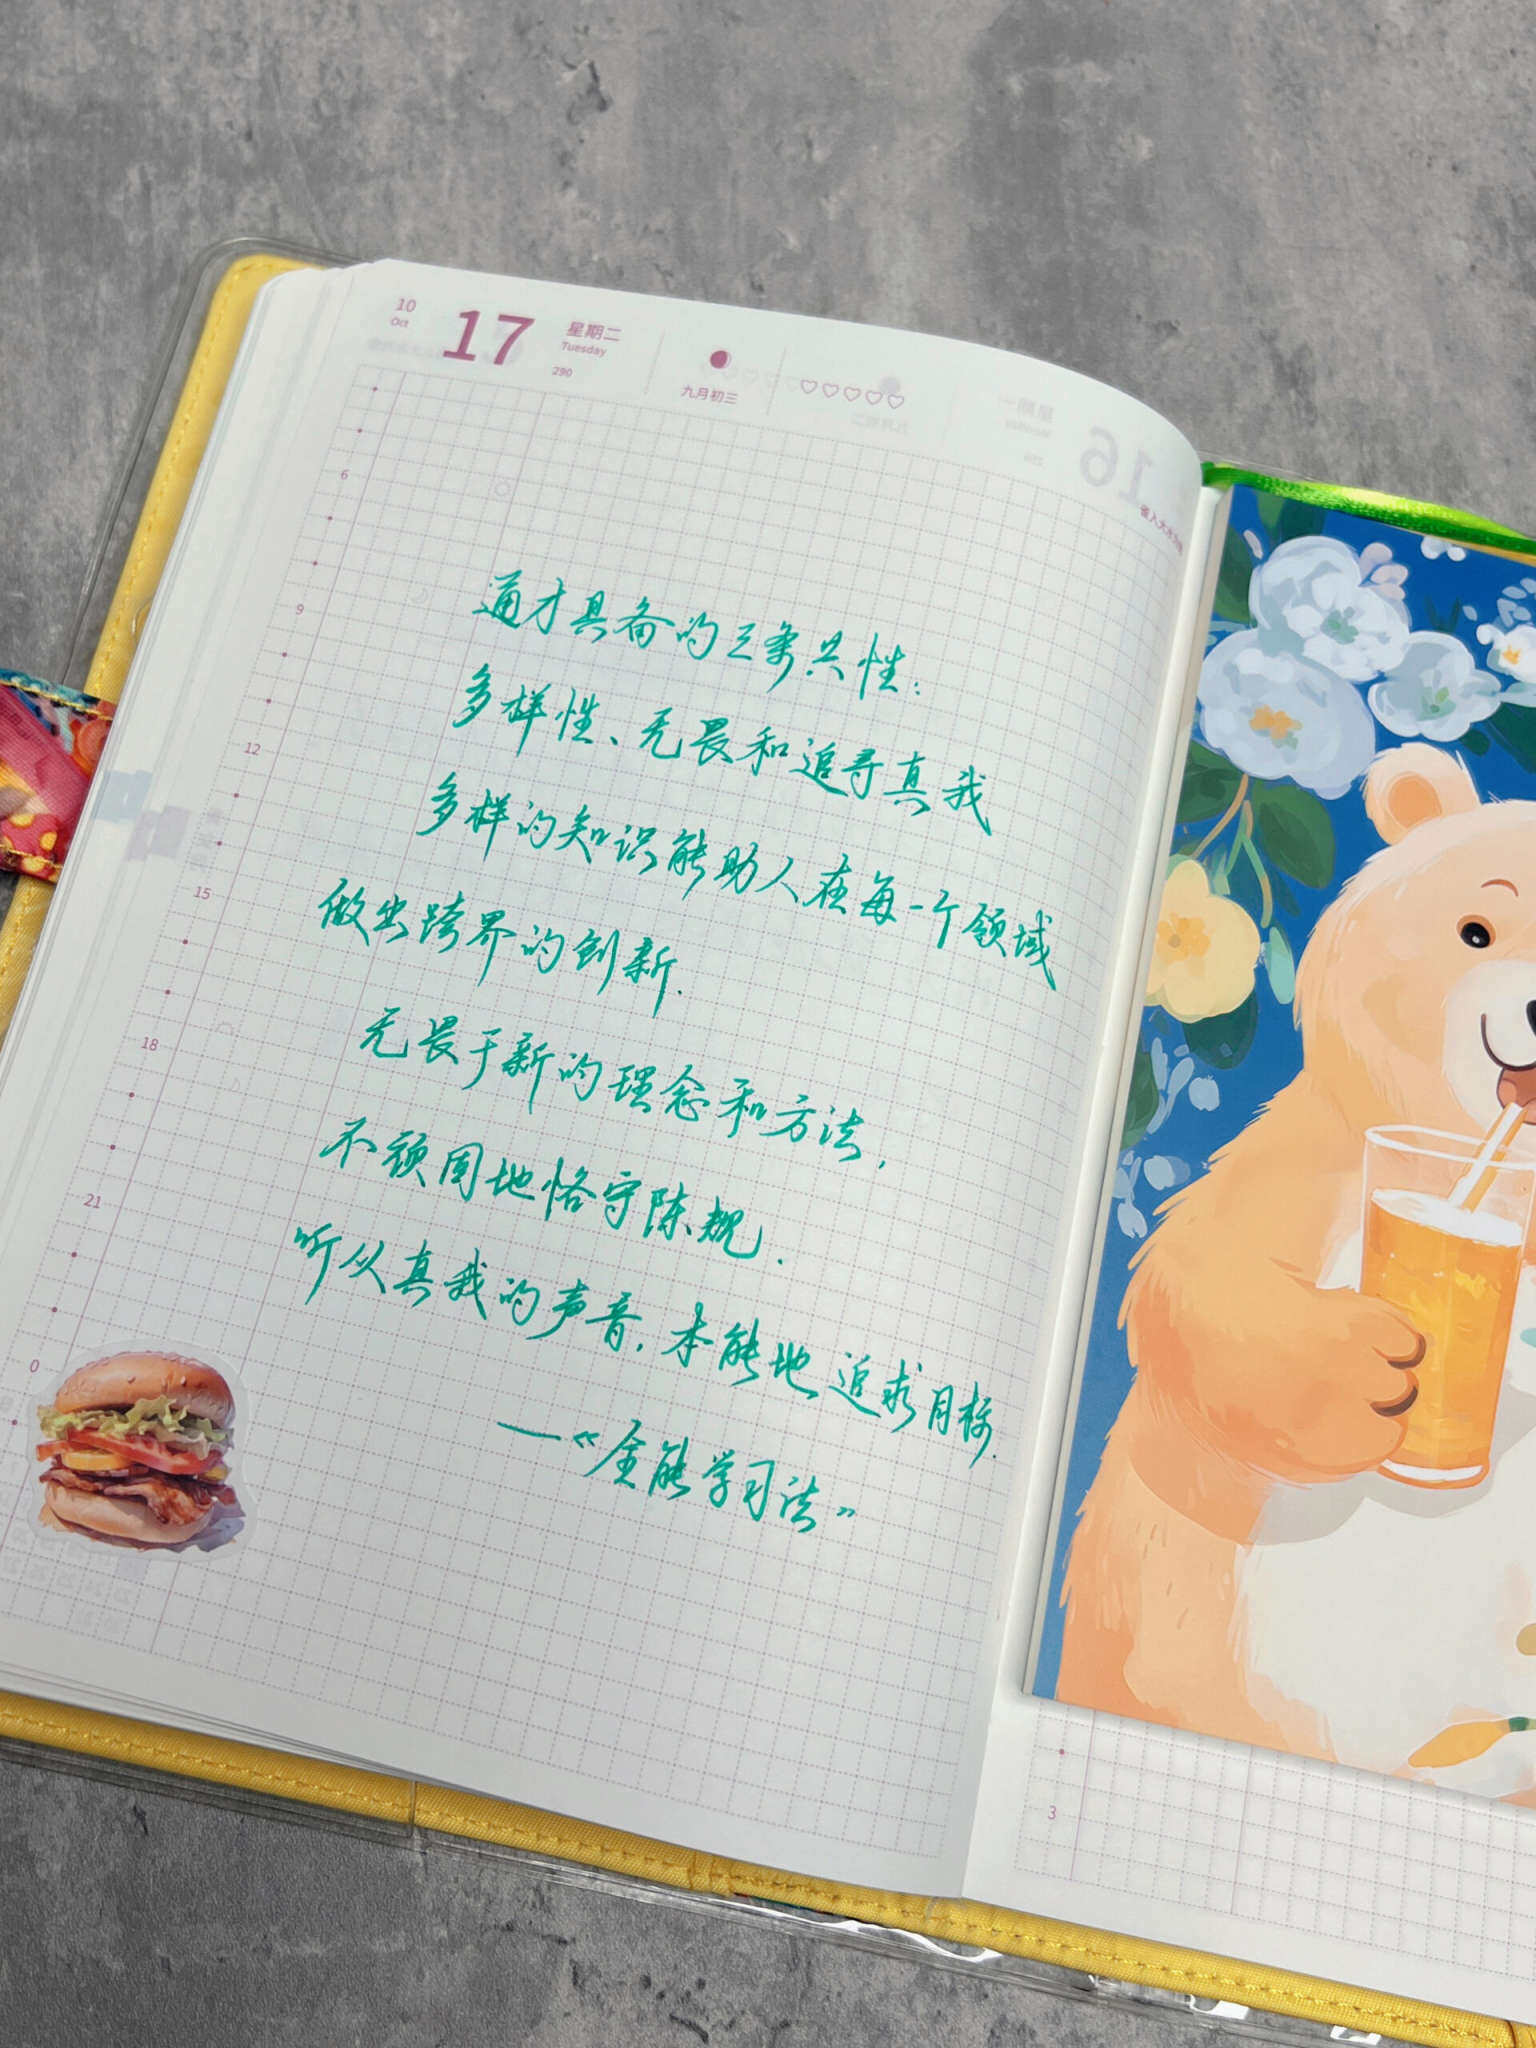 10
Oct
17
星期二
Tuesday
290
九月初三
6
9
12
15
18
21
0
通才具备的三条共性:
多样性、无畏和追寻真我
多样的知识能助人在每一个领域
做出跨界的创新.
无畏于新的理念和方法,
不顽固地恪守陈规.
听从真我的声音,本能地追求目标.
—《全能学习法》
3